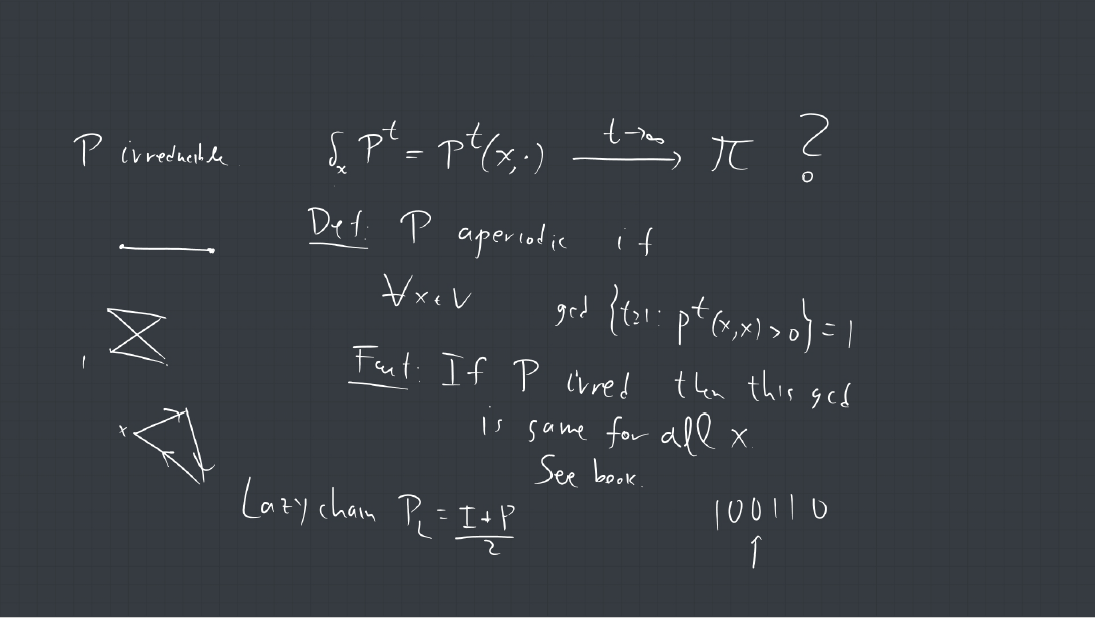 P irreducible δ_x P^t = P^t(x,·) →^{t→∞} π ?
Def: P aperiodic if
∀x∈V gcd {t≥1: P^t(x,x)>0} = 1
Fact: If P irred then this gcd
is same for all x
See book.
x
Lazy chain P_L = (I+P)/2
100110
↑